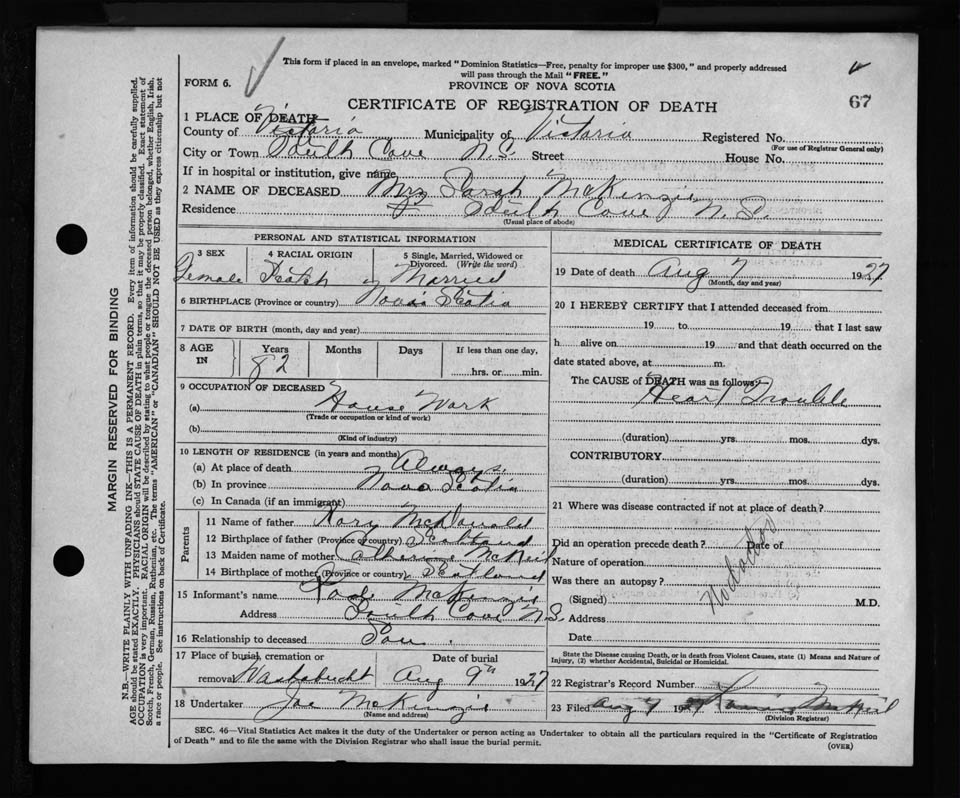 This form if placed in an envelope, marked "Dominion Statistics—Free, penalty for improper use $300," and properly addressed
will pass through the Mail "FREE."
FORM 6.
PROVINCE OF NOVA SCOTIA
67
CERTIFICATE OF REGISTRATION OF DEATH
1 PLACE OF DEATH
County of Victoria Municipality of Victoria Registered No.
(For use of Registrar General only)
City or Town South Cove N.S. Street House No.
If in hospital or institution, give name
2 NAME OF DECEASED Mrs Sarah McKenzie
Residence South Cove N.S.
(Usual place of abode)
PERSONAL AND STATISTICAL INFORMATION
3 SEX 4 RACIAL ORIGIN 5 Single, Married, Widowed or
Divorced. (Write the word)
Female Scotch Married
6 BIRTHPLACE (Province or country) Nova Scotia
7 DATE OF BIRTH (month, day and year)
8 AGE IN Years Months Days If less than one day,
82 hrs. or min.
9 OCCUPATION OF DECEASED
(a) House Work
(Trade or occupation or kind of work)
(b)
(Kind of industry)
10 LENGTH OF RESIDENCE (in years and months)
(a) At place of death Always
(b) In province Nova Scotia
(c) In Canada (if an immigrant)
Parents
11 Name of father Rory McDonald
12 Birthplace of father (Province or country) Scotland
13 Maiden name of mother Catherine McNeil
14 Birthplace of mother (Province or country) Scotland
15 Informant's name McKenzie
Address South Cove N.S.
16 Relationship to deceased Son.
17 Place of burial, cremation or Date of burial
removal Washabucht Aug 9th 1927
18 Undertaker Joe McKenzie
(Name and address)
MEDICAL CERTIFICATE OF DEATH
19 Date of death Aug 7 1927
(Month, day and year)
20 I HEREBY CERTIFY that I attended deceased from
19 to 19 that I last saw
h alive on 19 and that death occurred on the
date stated above, at m.
The CAUSE of DEATH was as follows:
Heart Trouble
(duration) yrs. mos. dys.
CONTRIBUTORY
(duration) yrs. mos. dys.
21 Where was disease contracted if not at place of death?
Did an operation precede death? Date of
Nature of operation
Was there an autopsy?
No doctor
(Signed) M.D.
Address
Date
State the Disease causing Death, or in death from Violent Causes, state (1) Means and Nature of
Injury, (2) whether Accidental, Suicidal or Homicidal.
22 Registrar's Record Number
23 Filed Aug 1927 McNeil
(Division Registrar)
SEC. 46—Vital Statistics Act makes it the duty of the Undertaker or person acting as Undertaker to obtain all the particulars required in the "Certificate of Registration
of Death" and to file the same with the Division Registrar who shall issue the burial permit.
(OVER)
MARGIN RESERVED FOR BINDING
N.B.—WRITE PLAINLY WITH UNFADING INK—THIS IS A PERMANENT RECORD. Every item of information should be carefully supplied.
AGE should be stated EXACTLY. PHYSICIANS should STATE CAUSE OF DEATH in plain terms, so that it may be properly classified. Exact statement of
OCCUPATION is very important. RACIAL ORIGIN will be described by stating to what people or tongue the deceased person belonged, whether English, Irish,
Scotch, French, German, Russian, Ruthenian, etc. The terms "AMERICAN" or "CANADIAN" SHOULD NOT BE USED as they express citizenship but not
a race or people. See instructions on back of Certificate.